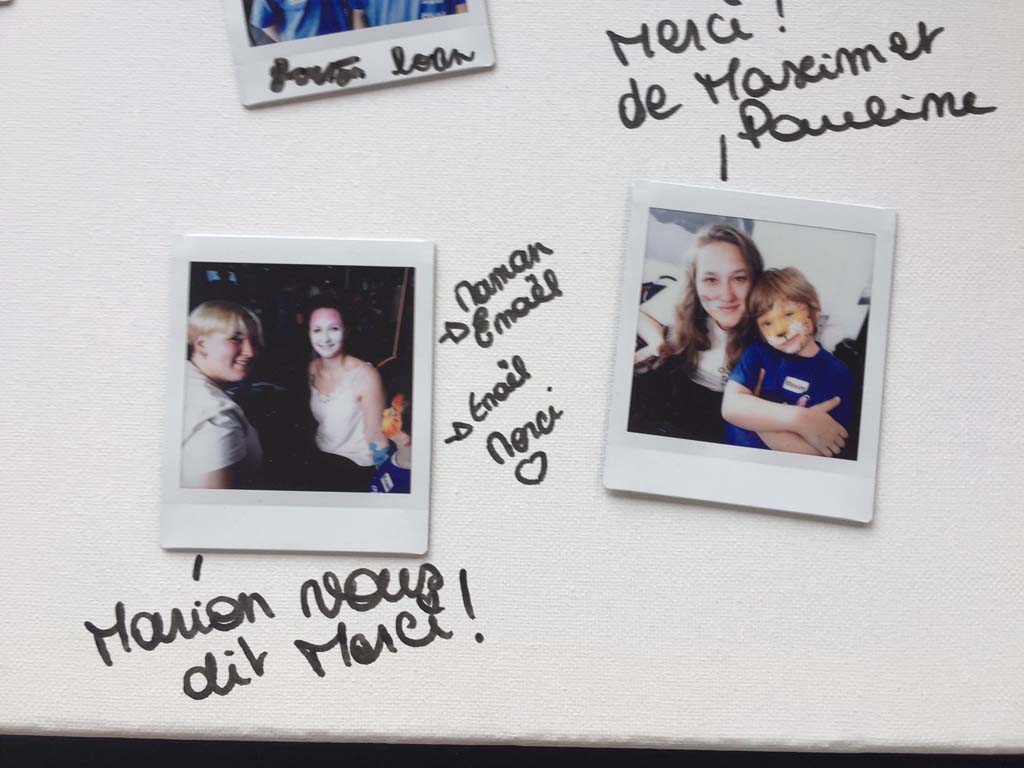 Loan
Merci !
de Maxim et
Pauline
Maman
Enaël
Enaël
Merci
Marion vous
dit Merci !